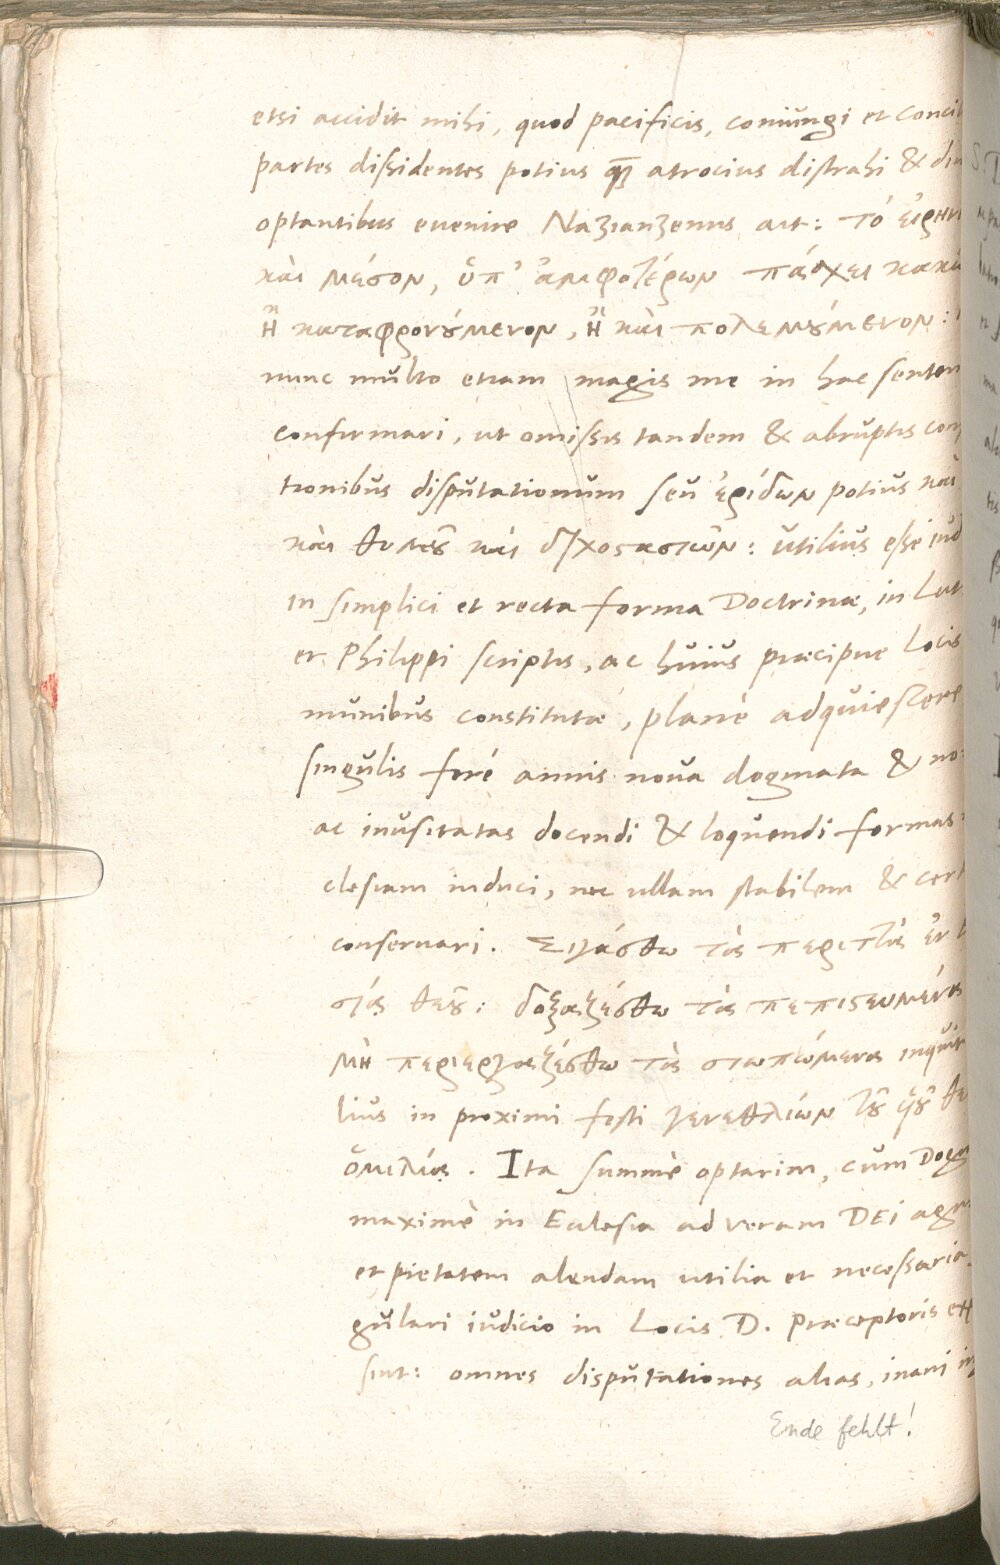 etsi accidit mihi, quod pacificis, coniungi et concil
partes dissidentes potius quam atrocius distrahi & diu
optantibus evenire Nazianzenus ait: τὸ εἰρηνι
καὶ μέσον, ὑπ' ἀμφοτέρων πάσχει κακῶ
ἢ καταφρονούμενον, ἢ καὶ πολεμούμενον:
nunc multo etiam magis me in hac senten
confirmari, ut omissis tandem & abruptis con
tionibus disputationum seu ἐρίδων potius καὶ
καὶ θυμοῦ καὶ διχοστασιῶν: utilius esse iud
in simplici et recta forma Doctrinæ, in Lut
et Philippi scriptis, ac huius præcipue Locis
munibus constitutæ, planè adquiescere
singulis ferè annis nova dogmata & no
ac inusitatas docendi & loquendi formas
clesiam induci, nec ullam stabilem & cert
conservari. Σιγάσθω τὰ περιττὰ ἐν
σίᾳ θεοῦ: δοξαζέσθω τὰ πεπιστευμένα
μὴ περιεργαζέσθω τὰ σιωπώμενα inquit
lius in proximi festi γενεθλίων τοῦ ὑοῦ θε
ὁμιλίᾳ. Ita summè optarim, cum Dogm
maximè in Ecclesia ad veram DEI agn
et pietatem alendam utilia et necessaria
gulari iudicio in Locis D. Præceptoris ex
sint: omnes disputationes alias, inani in
Ende fehlt!